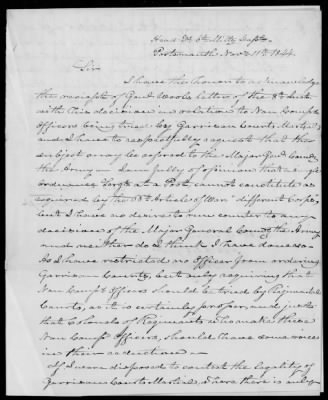 Head Qrs 6th Mily Dept
Portsmouth Nov 11th 1844
Sir
I have the honor to acknowledge
the receipt of Genl Wool's letter of the 8th inst
with the decision in relation to Non Comp
Officers being tried by Garrison Courts Martial
and I have to respectfully request that the
subject may be referred to the Major Genl Comdg
the Army. I am fully of opinion that a
ordnance Sergt at a Post, cannot constitute as
required by the Article of War "different Corps,
but I have no desire to run counter to any
decision of the Major General Comdg the Army
and neither do I think I have done so
As I have restricted no Officer from ordering
Garrison Courts, but only requiring that
Non Comp Officers should be tried by Regimental
Courts, as it is certainly proper, and just
that Colonels of Regiments who make these
Non Comp Officers, should have some voice
in their reduction.
If I were disposed to contest the legality of
Garrison Courts Martial, I have there is only